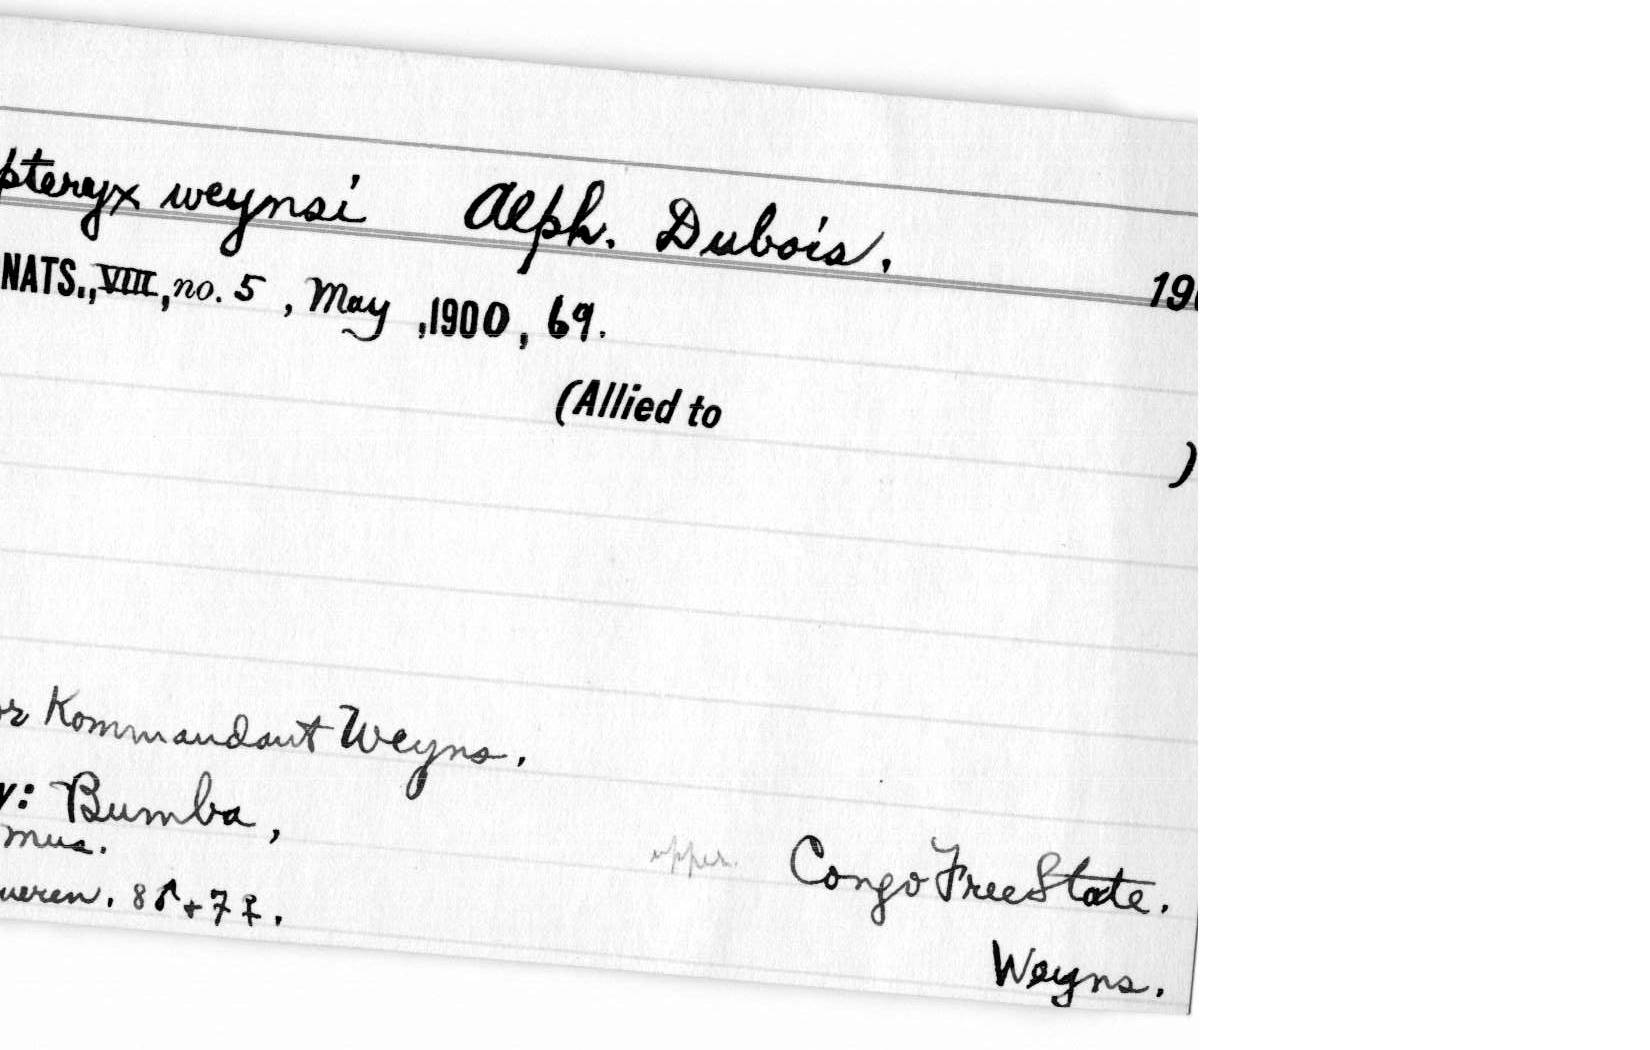 pteryx weynsi Alph. Dubois. 190
NATS., VIII, no. 5, May, 1900, 69.
(Allied to
)
or Kommandant Weyns.
y: Bumba,
Mus. upper. Congo Free State.
ueren. 8♂+7♀.
Weyns.